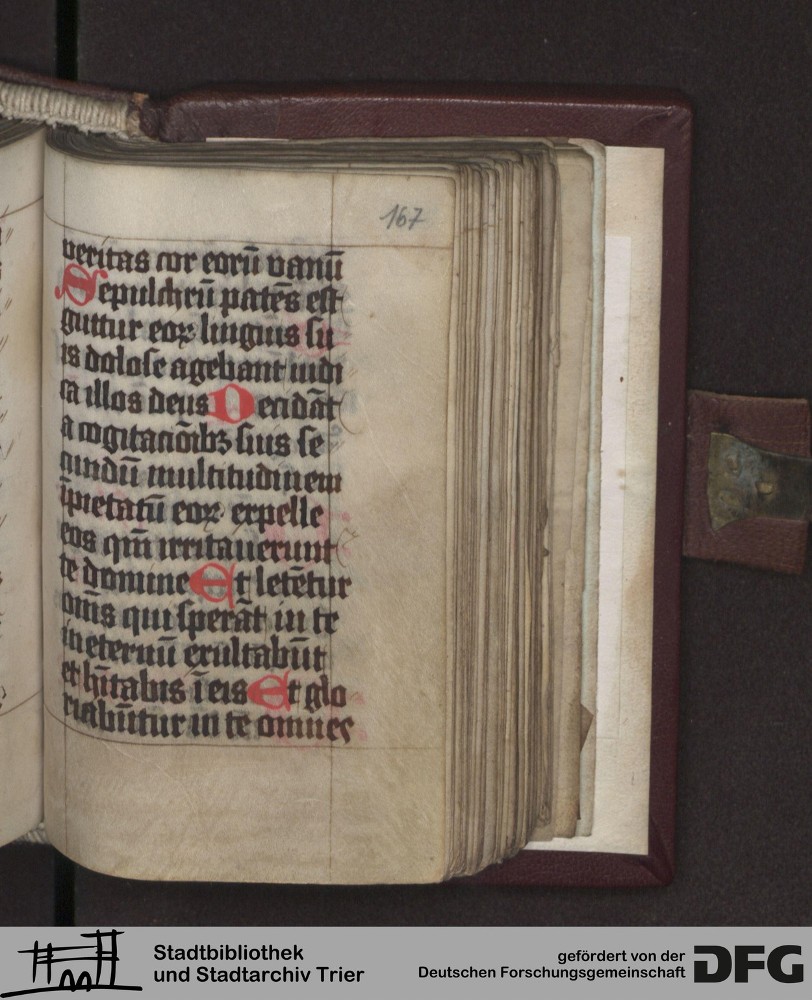 167
veritas cor eorū vanū
Sepulchrū patēs est
guttur eoꝝ linguis su
is dolose agebant iudi
ca illos deus Decidāt
a cogitaciōibꝫ suis se
cundū multitudinem
īpietatū eoꝝ expelle
eos qm̄ irritauerunt
te domine Et letētur
om̄s qui sperāt in te
in eternū exultabūt
et hītabis ī eis Et glo
riabūtur in te omnes
Stadtbibliothek
und Stadtarchiv Trier
gefördert von der
Deutschen Forschungsgemeinschaft DFG